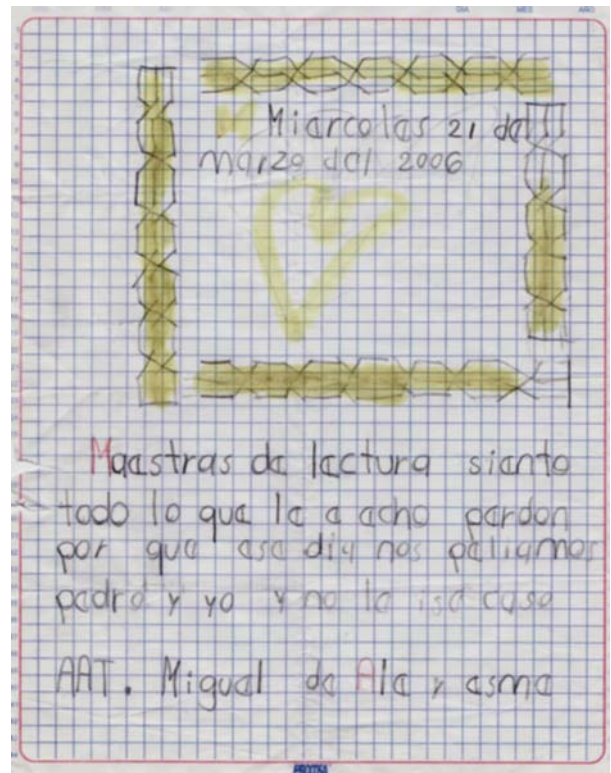 DIA MES AÑO
Miercoles 21 del
marzo del 2006
Maestras de lectura siento
todo lo que le e echo perdon
por que ese dia nos peliamos
pedro y yo y no le ise caso
AAT. Miguel de Ale y esme